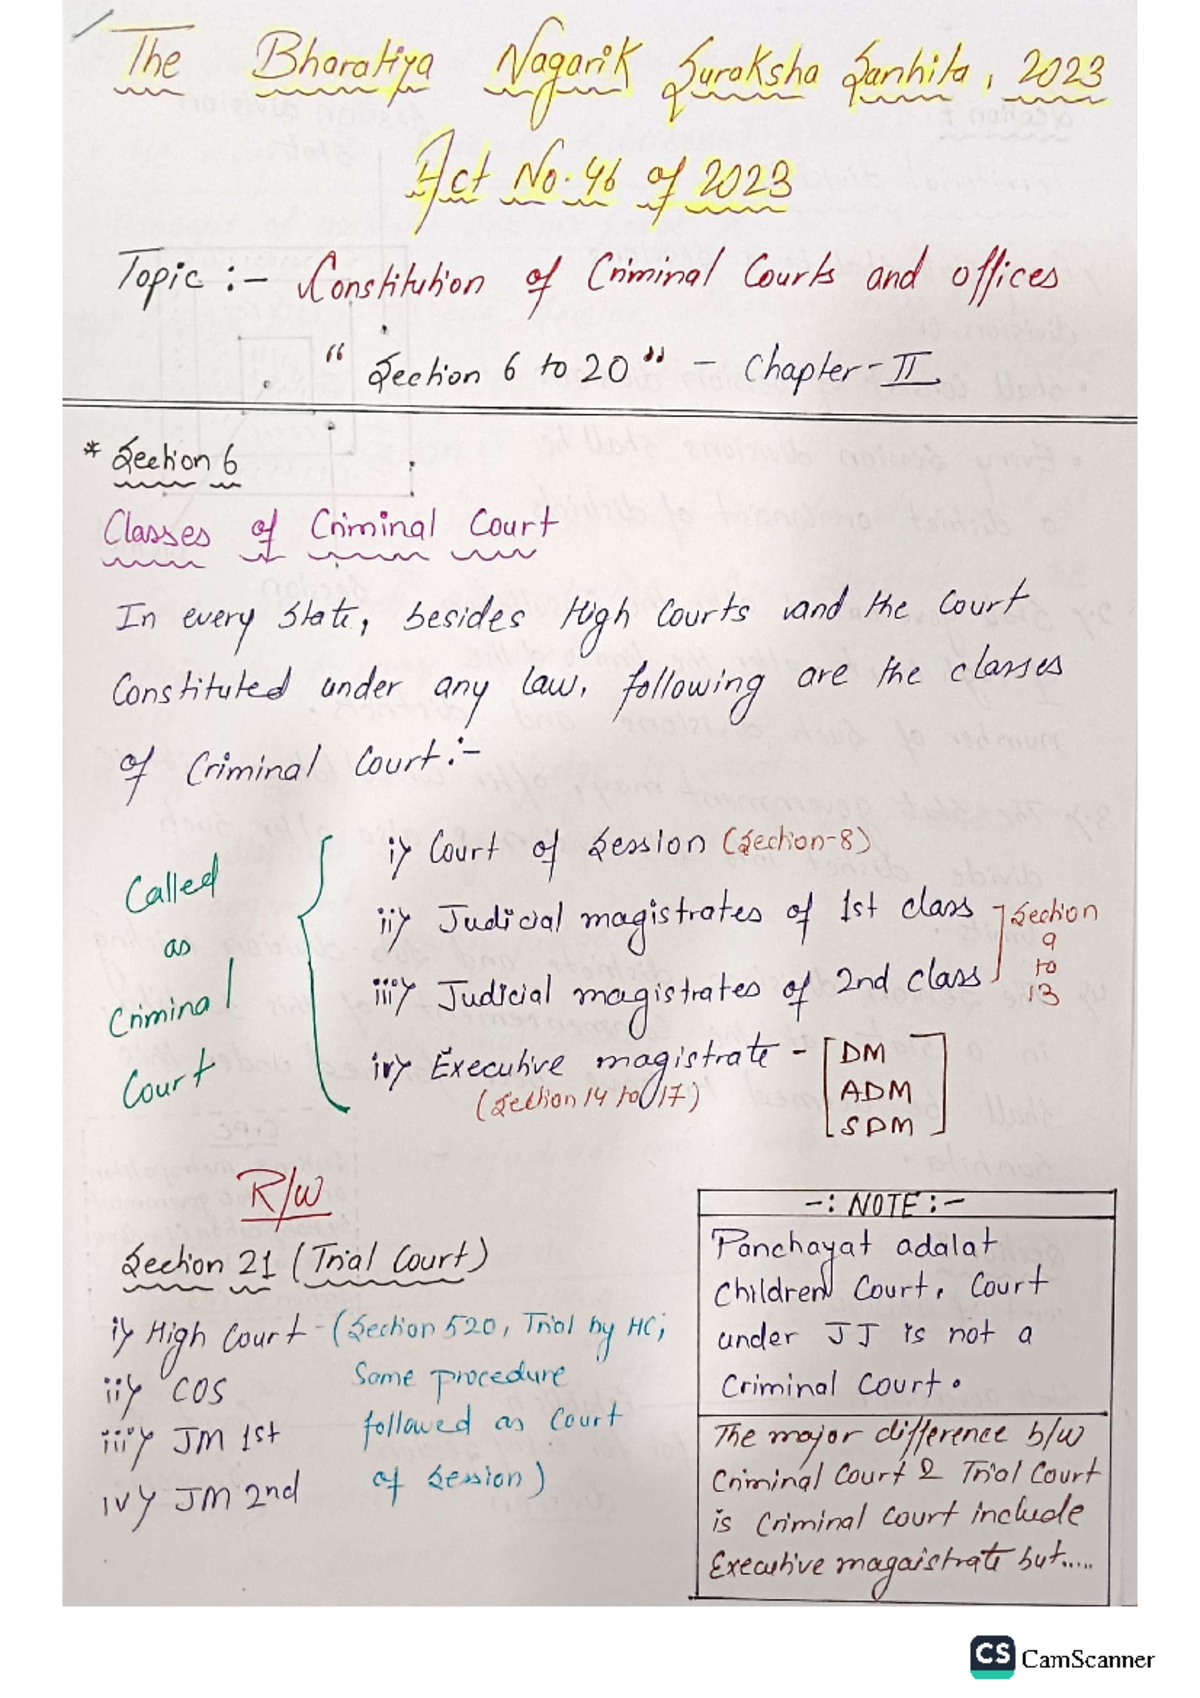 The Bharatiya Nagarik Suraksha Sanhita, 2023
Act No. 46 of 2023
Topic :- Constitution of Criminal Courts and offices
" Section 6 to 20 " - Chapter-II
* Section 6
Classes of Criminal Court
In every State, besides High Courts and the Court
Constituted under any law, following are the classes
of Criminal Court:-
Called
as
Criminal
Court
i) Court of Session (Section-8)
ii) Judicial magistrates of 1st class
iii) Judicial magistrates of 2nd class
Section
9
to
13
iv) Executive magistrate -
(Section 14 to 17)
DM
ADM
SDM
R/W
Section 21 (Trial Court)
i) High Court - (Section 520, Trial by HC,
Same procedure
followed as Court
of Session)
ii) COS
iii) JM 1st
iv) JM 2nd
-: NOTE :-
Panchayat adalat
Children Court, Court
under JJ is not a
Criminal Court.
The major difference b/w
Criminal Court & Trial Court
is Criminal Court include
Executive magaistrate but.....
CS CamScanner